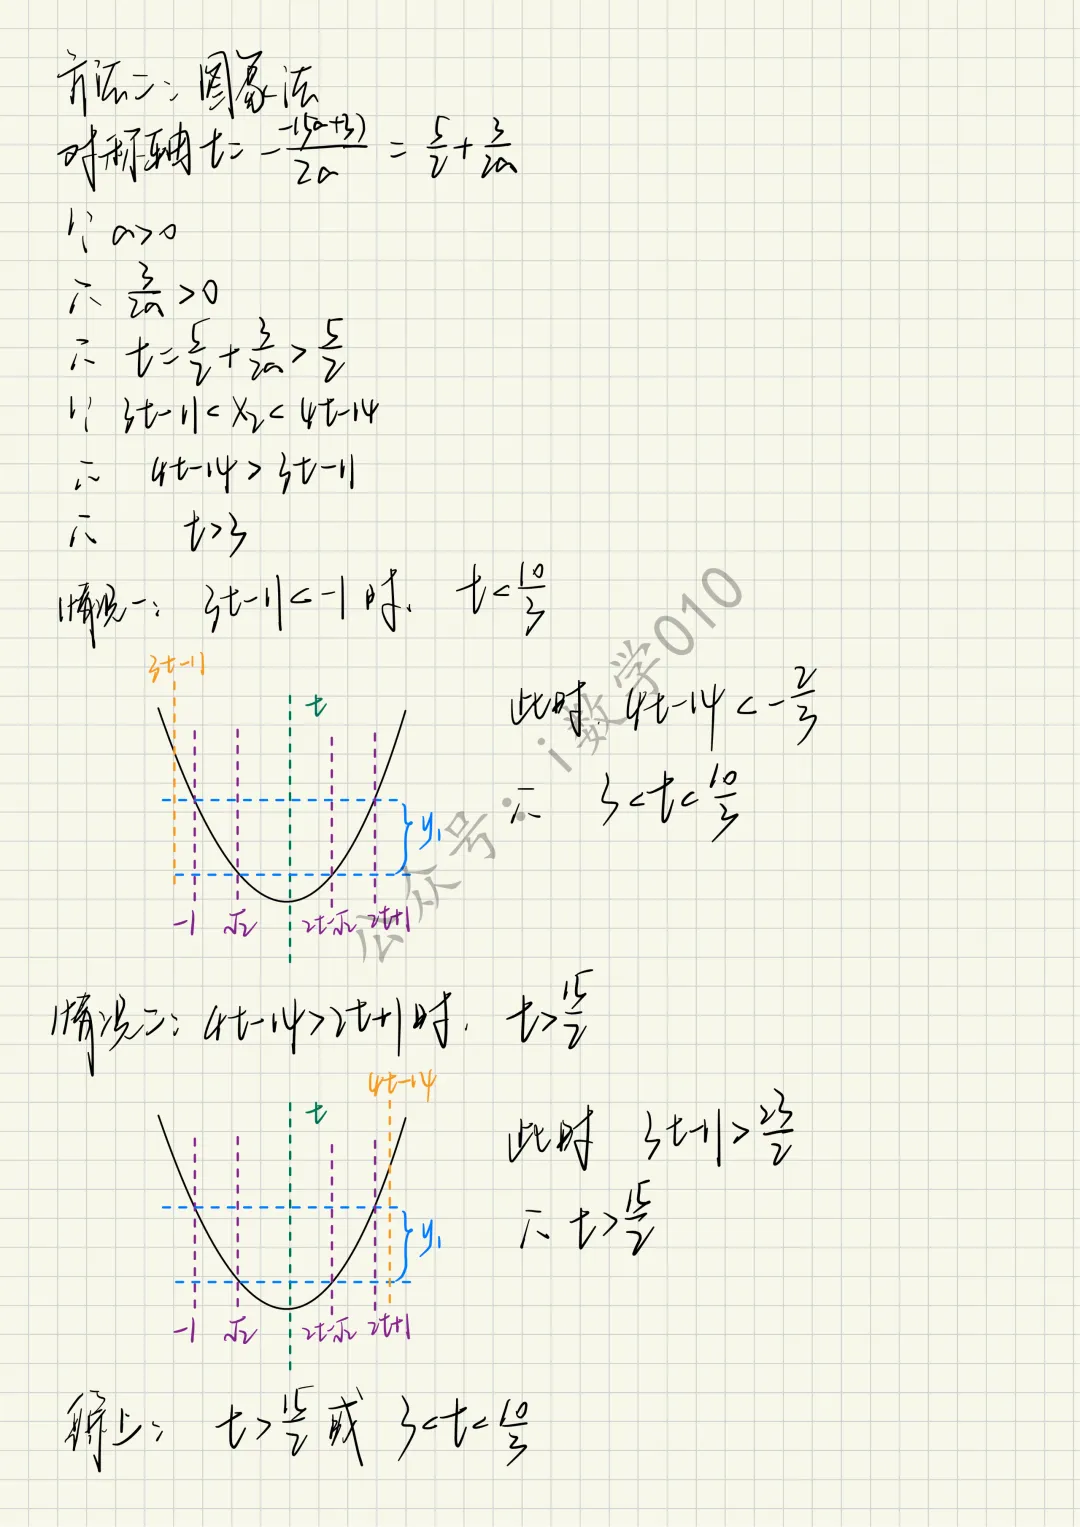 方法二:图象法
对称轴 t = -\frac{-(5a+3)}{2a} = \frac{5}{2} + \frac{3}{2a}
∵ a>0
∴ \frac{3}{2a} > 0
∴ t = \frac{5}{2} + \frac{3}{2a} > \frac{5}{2}
∵ 3t-11 < x₂ < 4t-14
∴ 4t-14 > 3t-11
∴ t>3
情况一: 3t-11 < -1 时, t < \frac{10}{3}
3t-11
t
此时, 4t-14 < -\frac{2}{3}
∴ 3 < t < \frac{10}{3}
y₁
-1 √2 2t-√2 2t+1
公众号:i数学010
情况二: 4t-14 > 2t+1 时, t > \frac{15}{2}
4t-14
t
此时 3t-11 > \frac{23}{2}
∴ t > \frac{15}{2}
y₁
-1 √2 2t-√2 2t+1
综上: t > \frac{15}{2} 或 3 < t < \frac{10}{3}